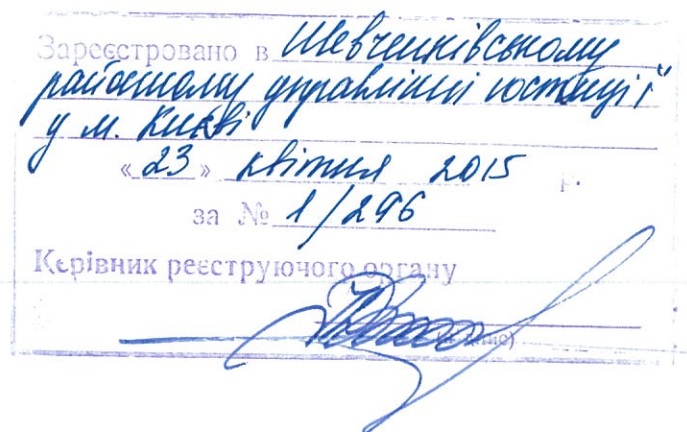 Зареєстровано в Шевченківському
районному управлінні юстиції
у м. Києві
«23» квітня 2015 р.
за № 1/296
Керівник реєструючого органу